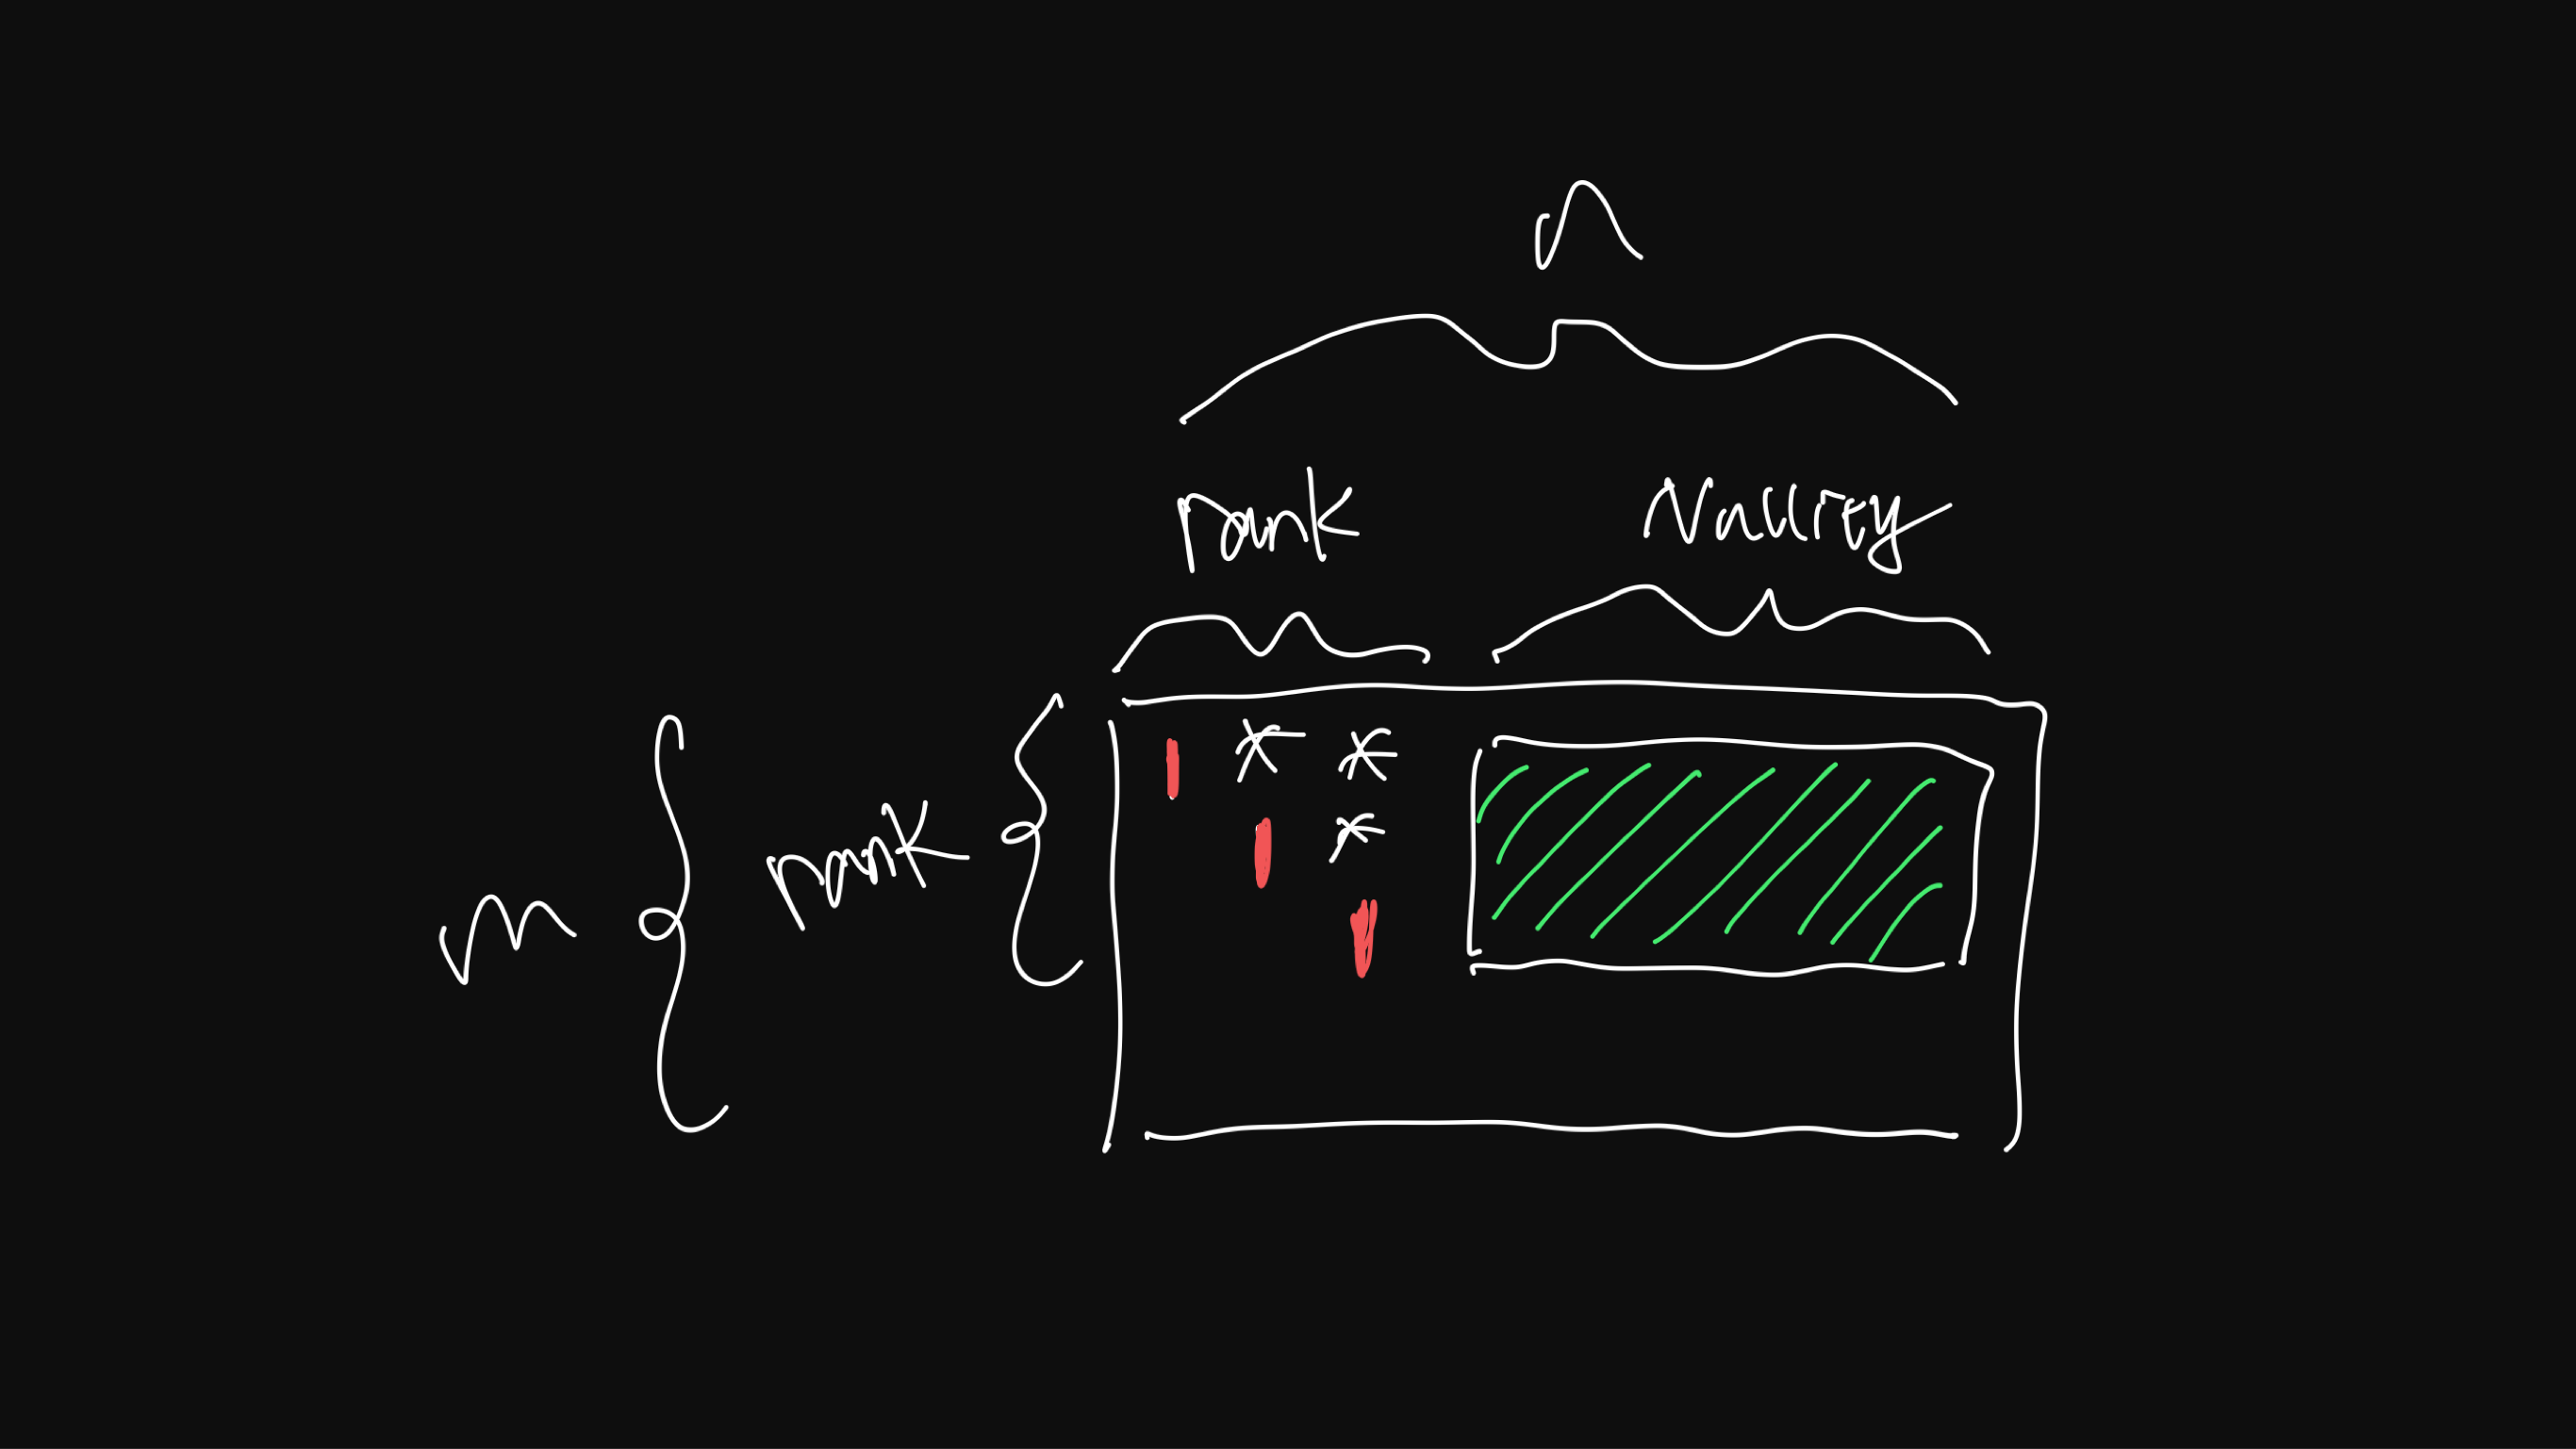 n
rank Nullity
m rank
1 * *
1 *
1